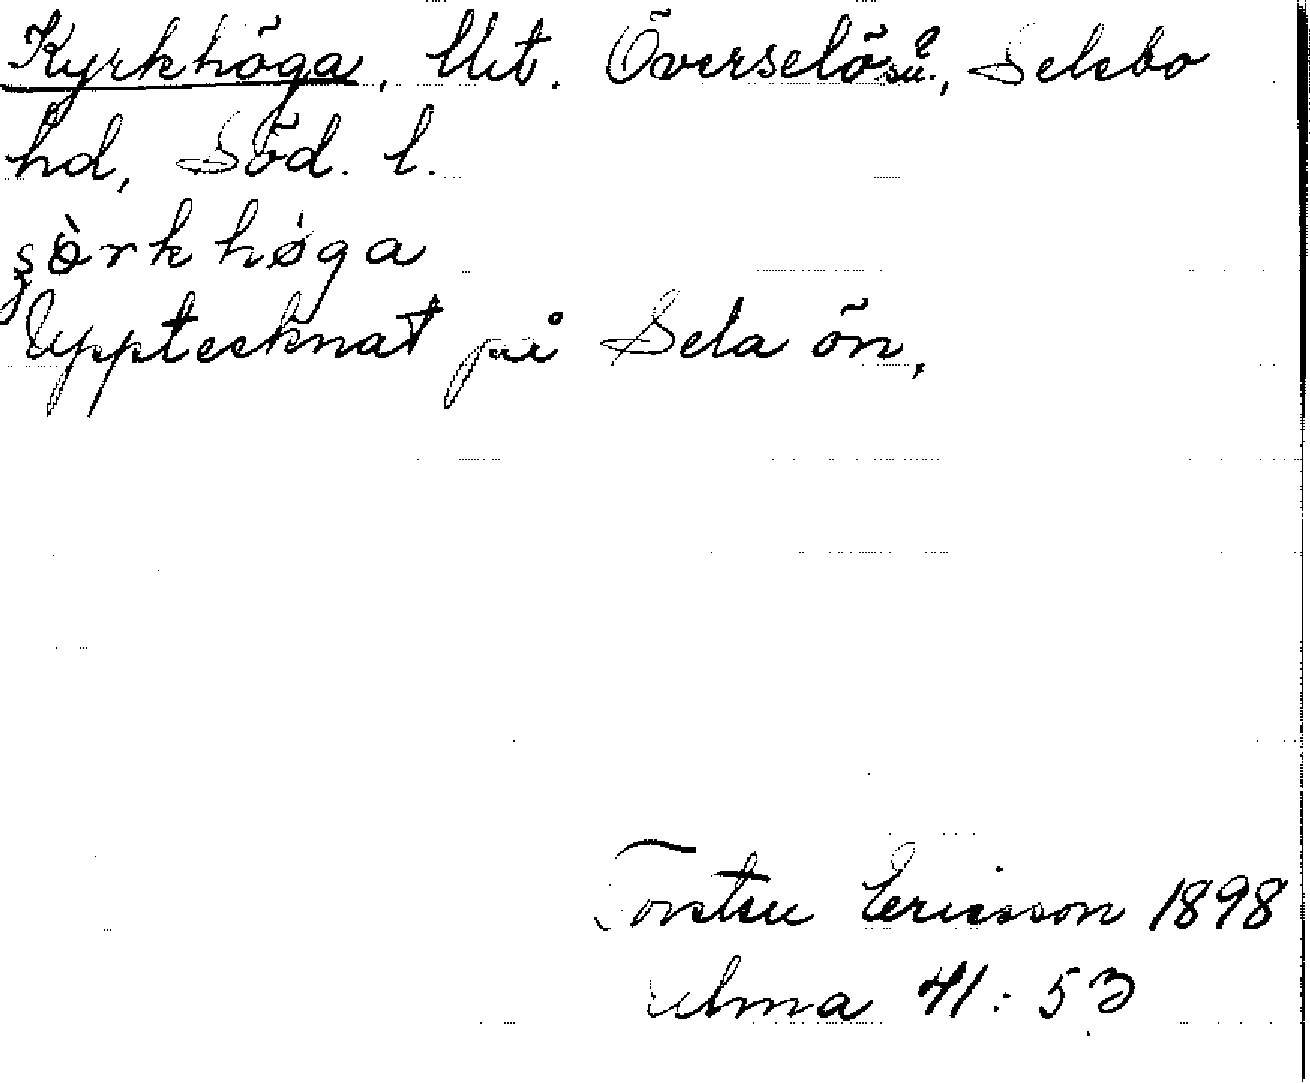 Kyrkhöga, Ut. Överselö sn., Selebo
hd, Söd. l.
Upptecknat på Sela ön,
Torsten Ericsson 1898
Ulma 41:53